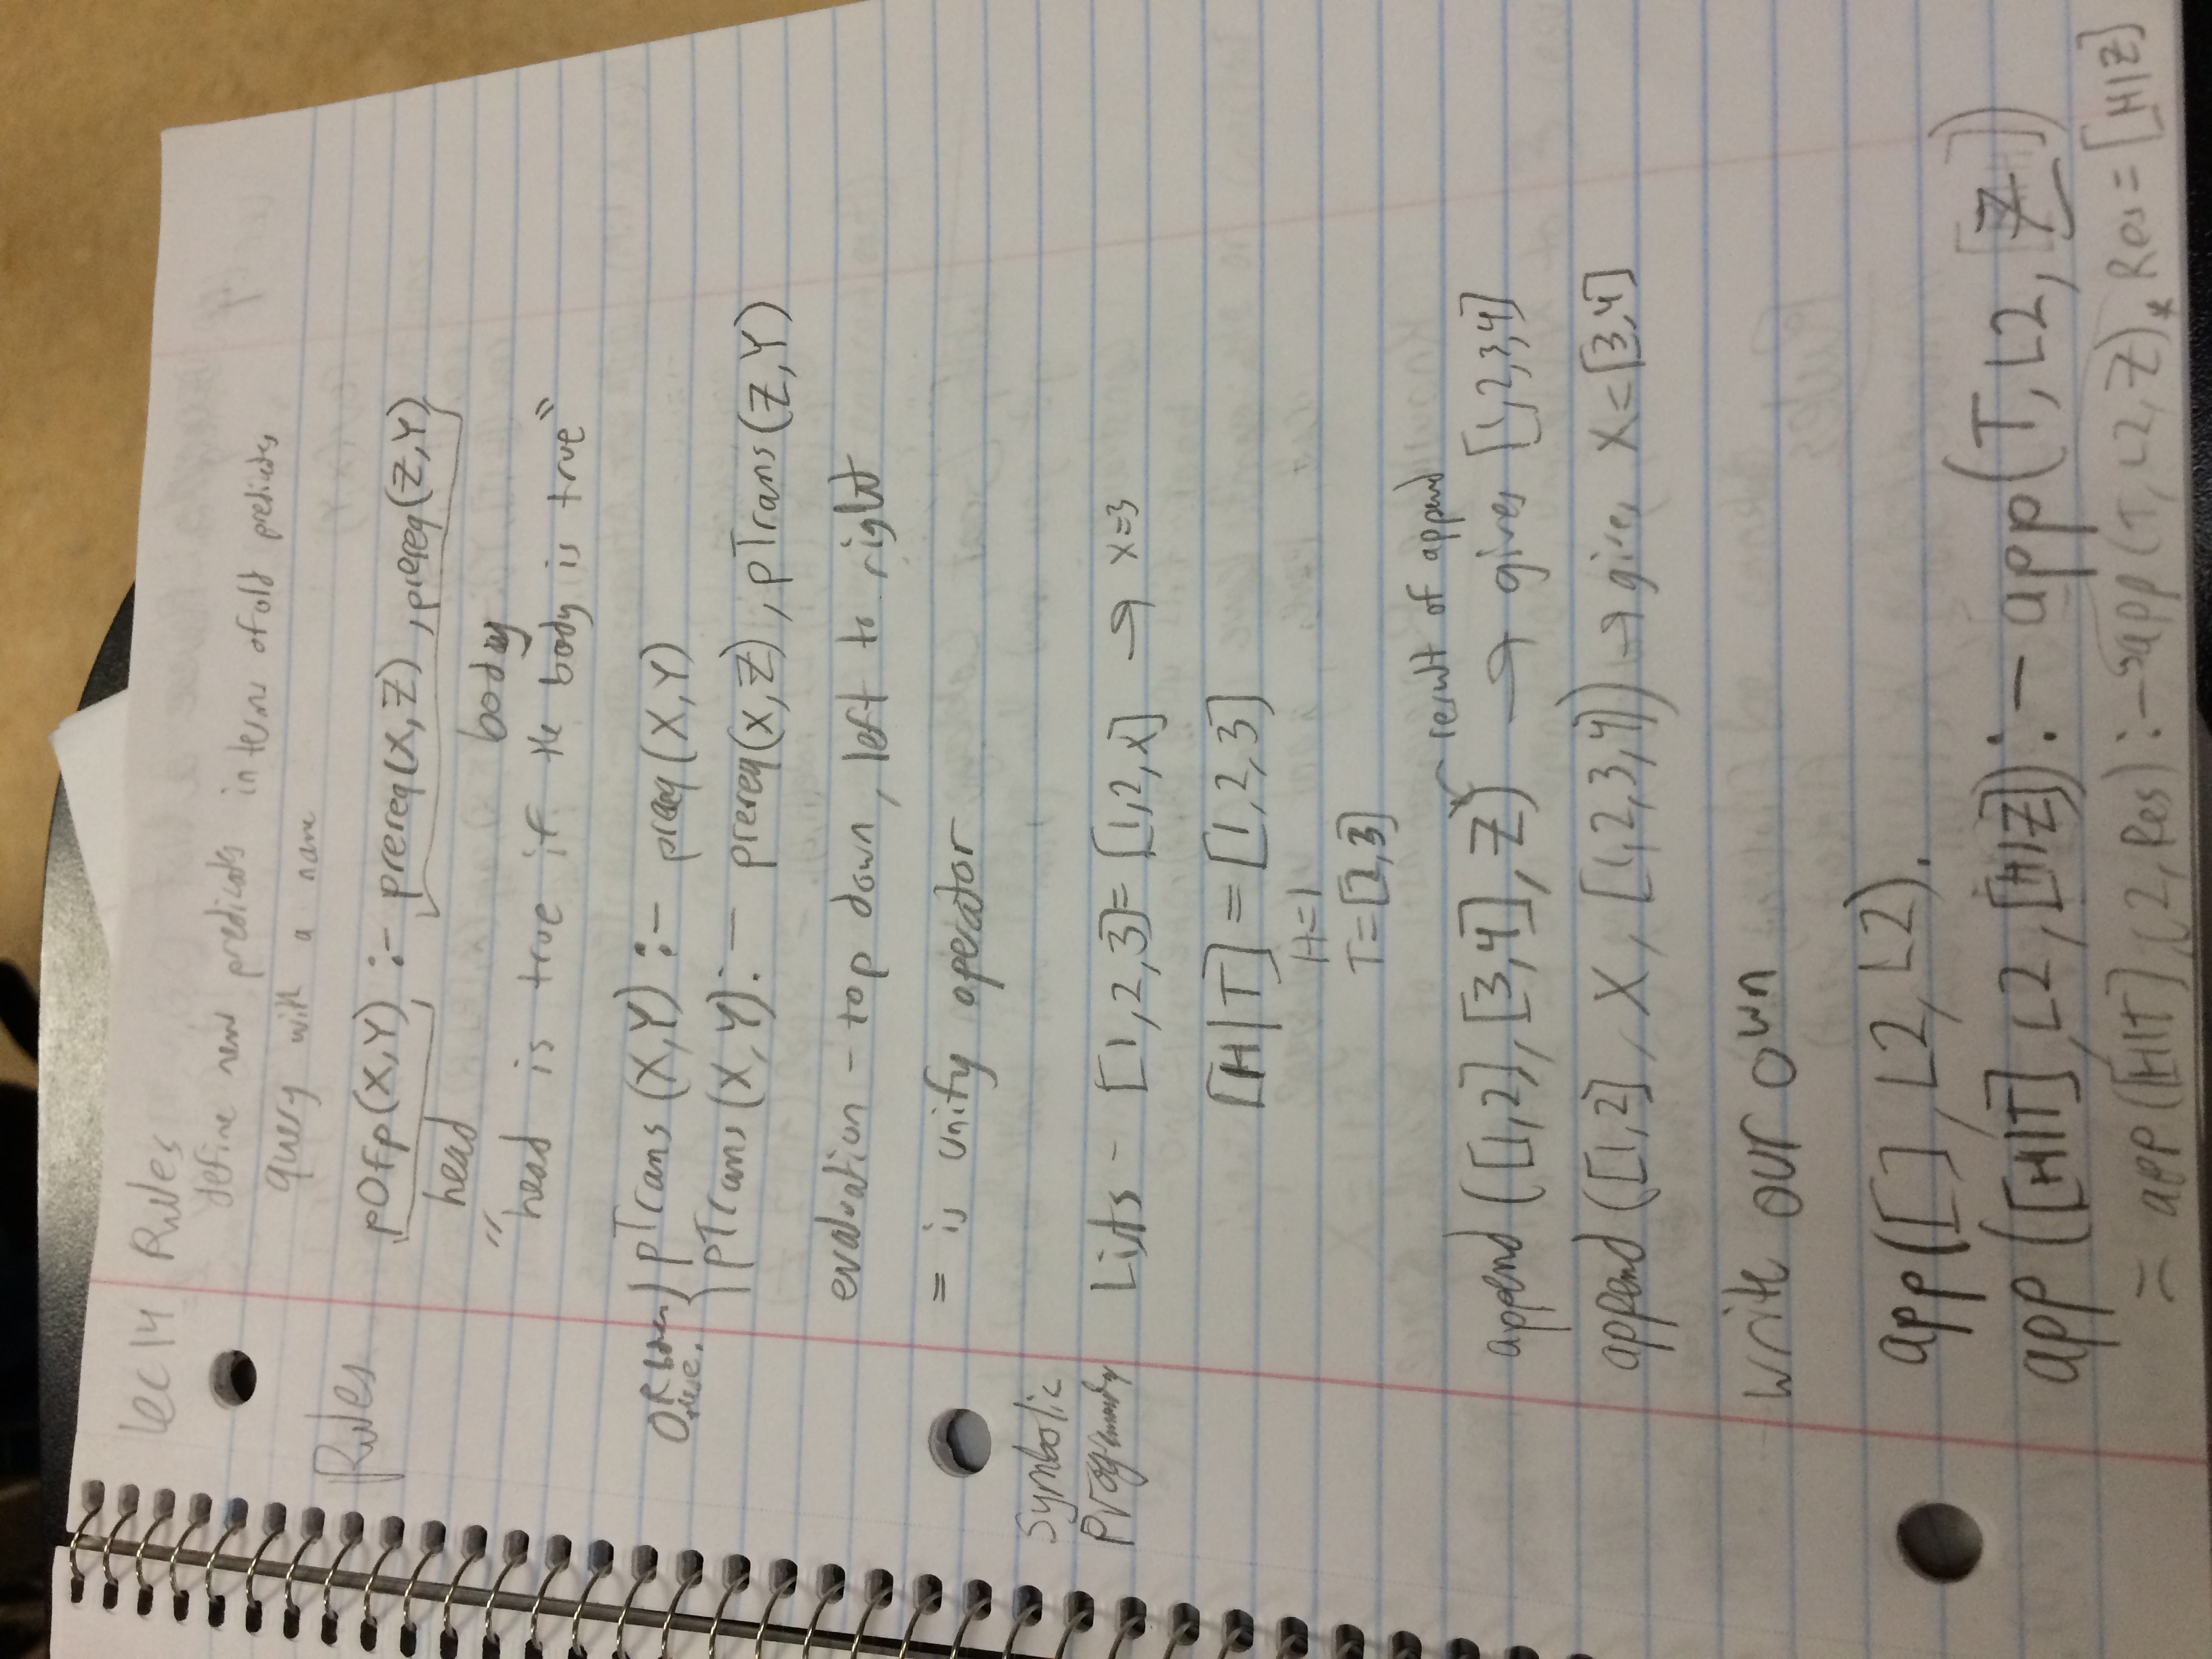 Lec 14 Rules
define new predicates in terms of old predicates
query with a name
Rules
pOfp(X,Y) :- prereq(X,Z), prereq(Z,Y)
head body
"head is true if the body is true"
OR
pTrans(X,Y) :- prereq(X,Y)
pTrans(X,Y) :- prereq(X,Z), pTrans(Z,Y)
evaluation - top down, left to right
= is unify operator
Symbolic
Programming
Lists - [1,2,3] = [1,2,x] → x=3
[H|T] = [1,2,3]
H=1
T=[2,3]
result of append
append([1,2],[3,4],Z) → gives [1,2,3,4]
append([1,2], X, [1,2,3,4]) → gives X=[3,4]
write our own
app([], L2, L2).
app([H|T], L2, [H|Z]) :- app(T, L2, Z)
= app([H|T], L2, Res) :- app(T, L2, Z), Res = [H|Z]